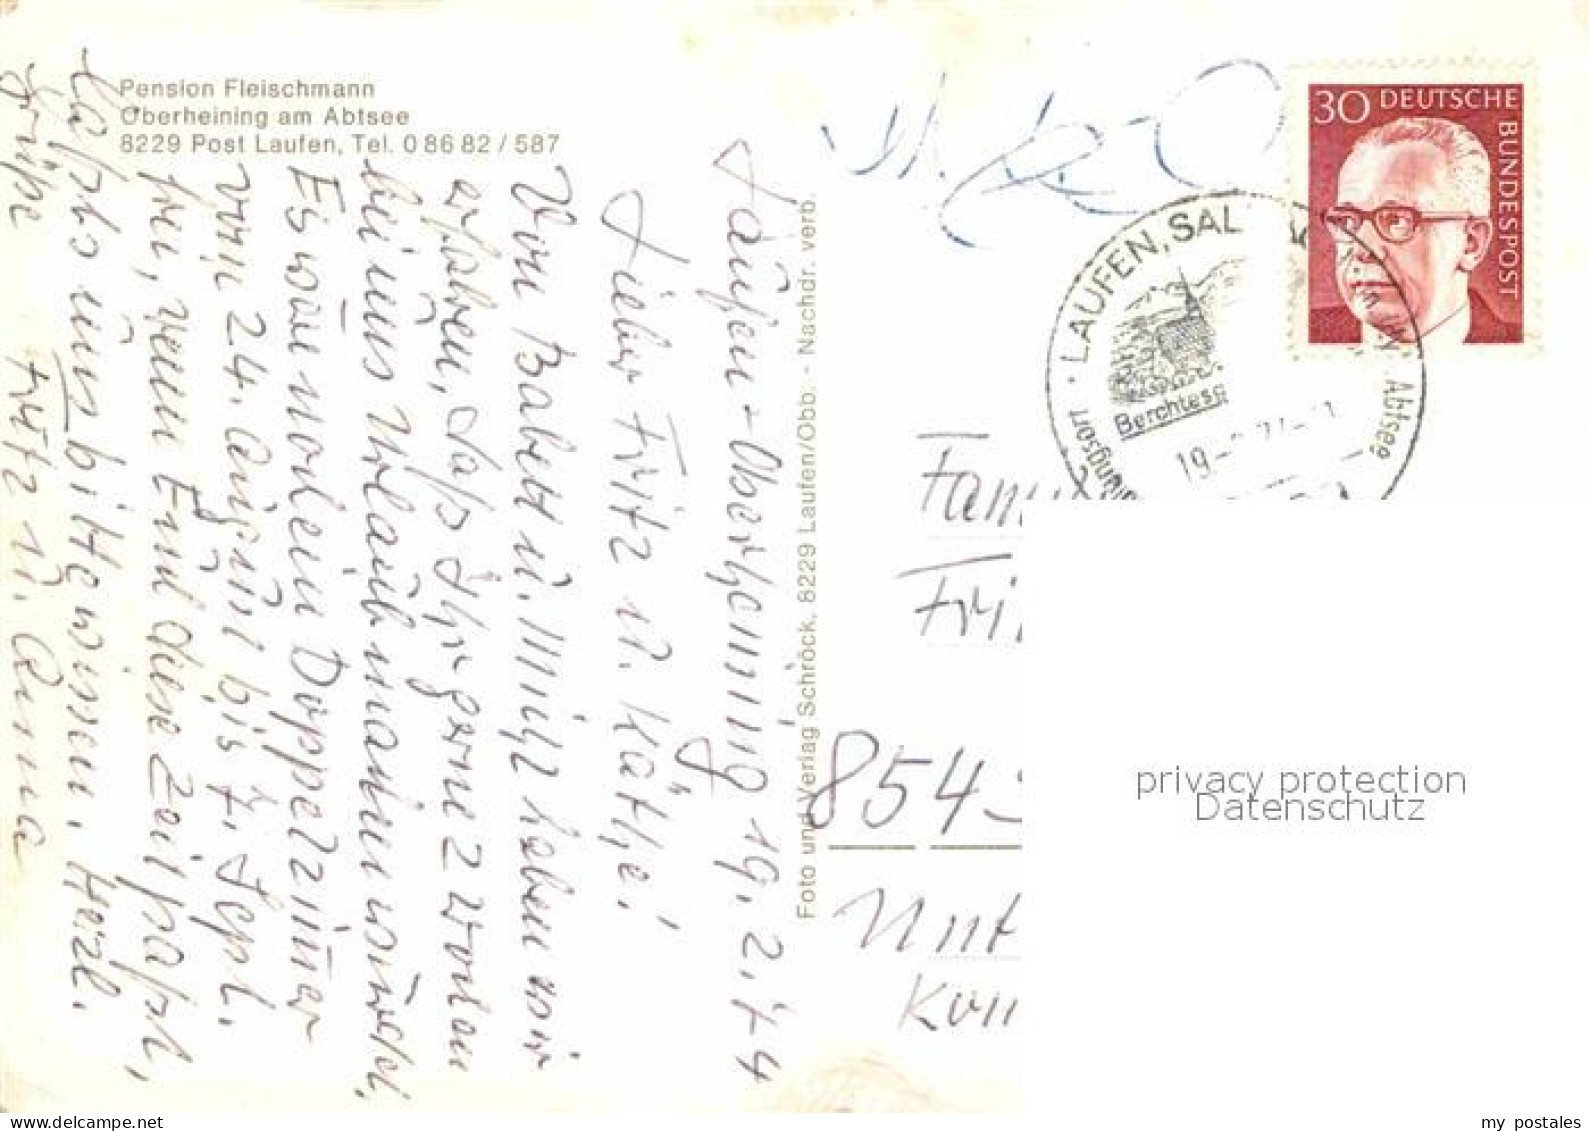 Pension Fleischmann
Oberheining am Abtsee
8229 Post Laufen, Tel. 0 86 82 / 587
Laufen-Oberheining 19.2.74
Lieber Fritz u. Käthe!
Von Babett u. Mich haben wir
erfahren, daß Ihr gerne 2 Wochen
bei uns Urlaub machen würdet.
Es wäre noch ein Doppelzimmer
vom 24. August bis 7. Sept.
frei, wenn Euch diese Zeit paßt,
laßts uns bitte wissen. Herzl.
Grüße Fritz u. Anna
Foto und Verlag Schröck, 8229 Laufen/Obb. - Nachdr. verb.
30 DEUTSCHE
BUNDESPOST
LAUFEN, SAL
Berchtesg
Abtsee
19
Fam
Fri
854
Unt
privacy protection
Datenschutz
my postales